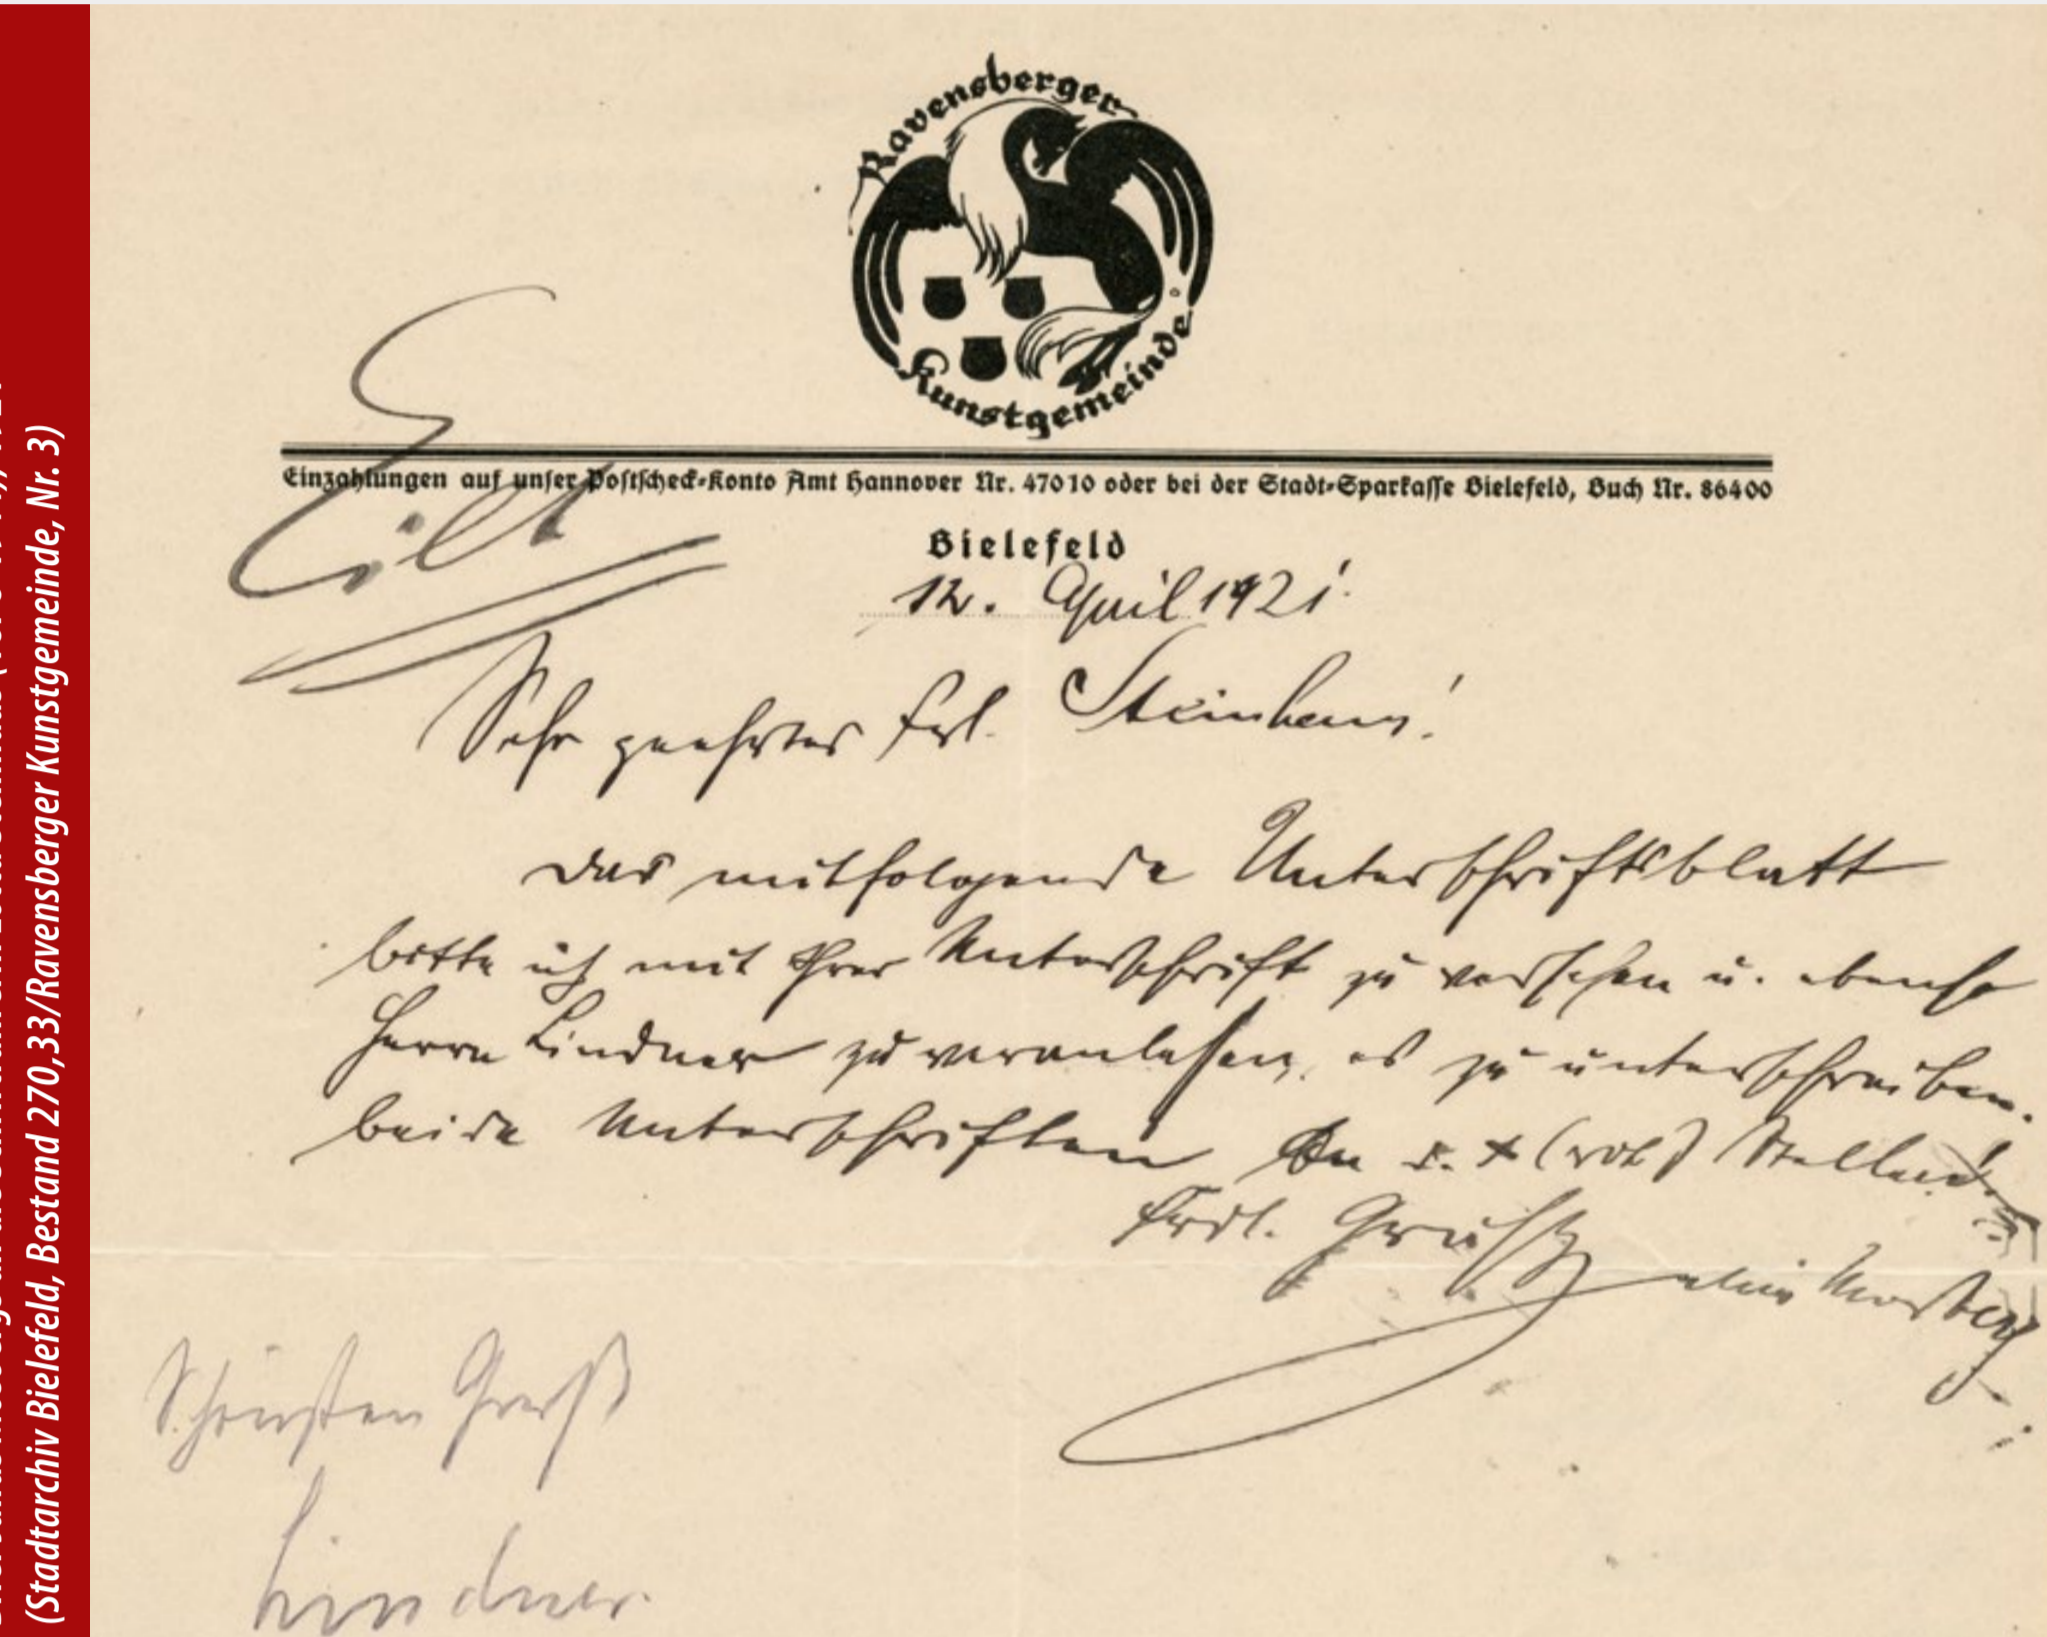 (Stadtarchiv Bielefeld, Bestand 270,33/Ravensberger Kunstgemeinde, Nr. 3)
Ravensberger
Kunstgemeinde
Einzahlungen auf unser Postscheck-Konto Amt Hannover Nr. 47010 oder bei der Stadt-Sparkasse Bielefeld, Buch Nr. 86400
Eilt
Bielefeld
12. April 1921.
Sehr geehrtes Frl. Steinhaus!
Das mitfolgende Unterschriftsblatt
bitte ich mit Ihrer Unterschrift zu versehen u. ebenso
Herrn Lindner zu veranlassen, es zu unterschreiben.
beide Unterschriften an d. x (rot) Stellen.
Frdl. Gruß
Schönsten Gruß
Lindner.